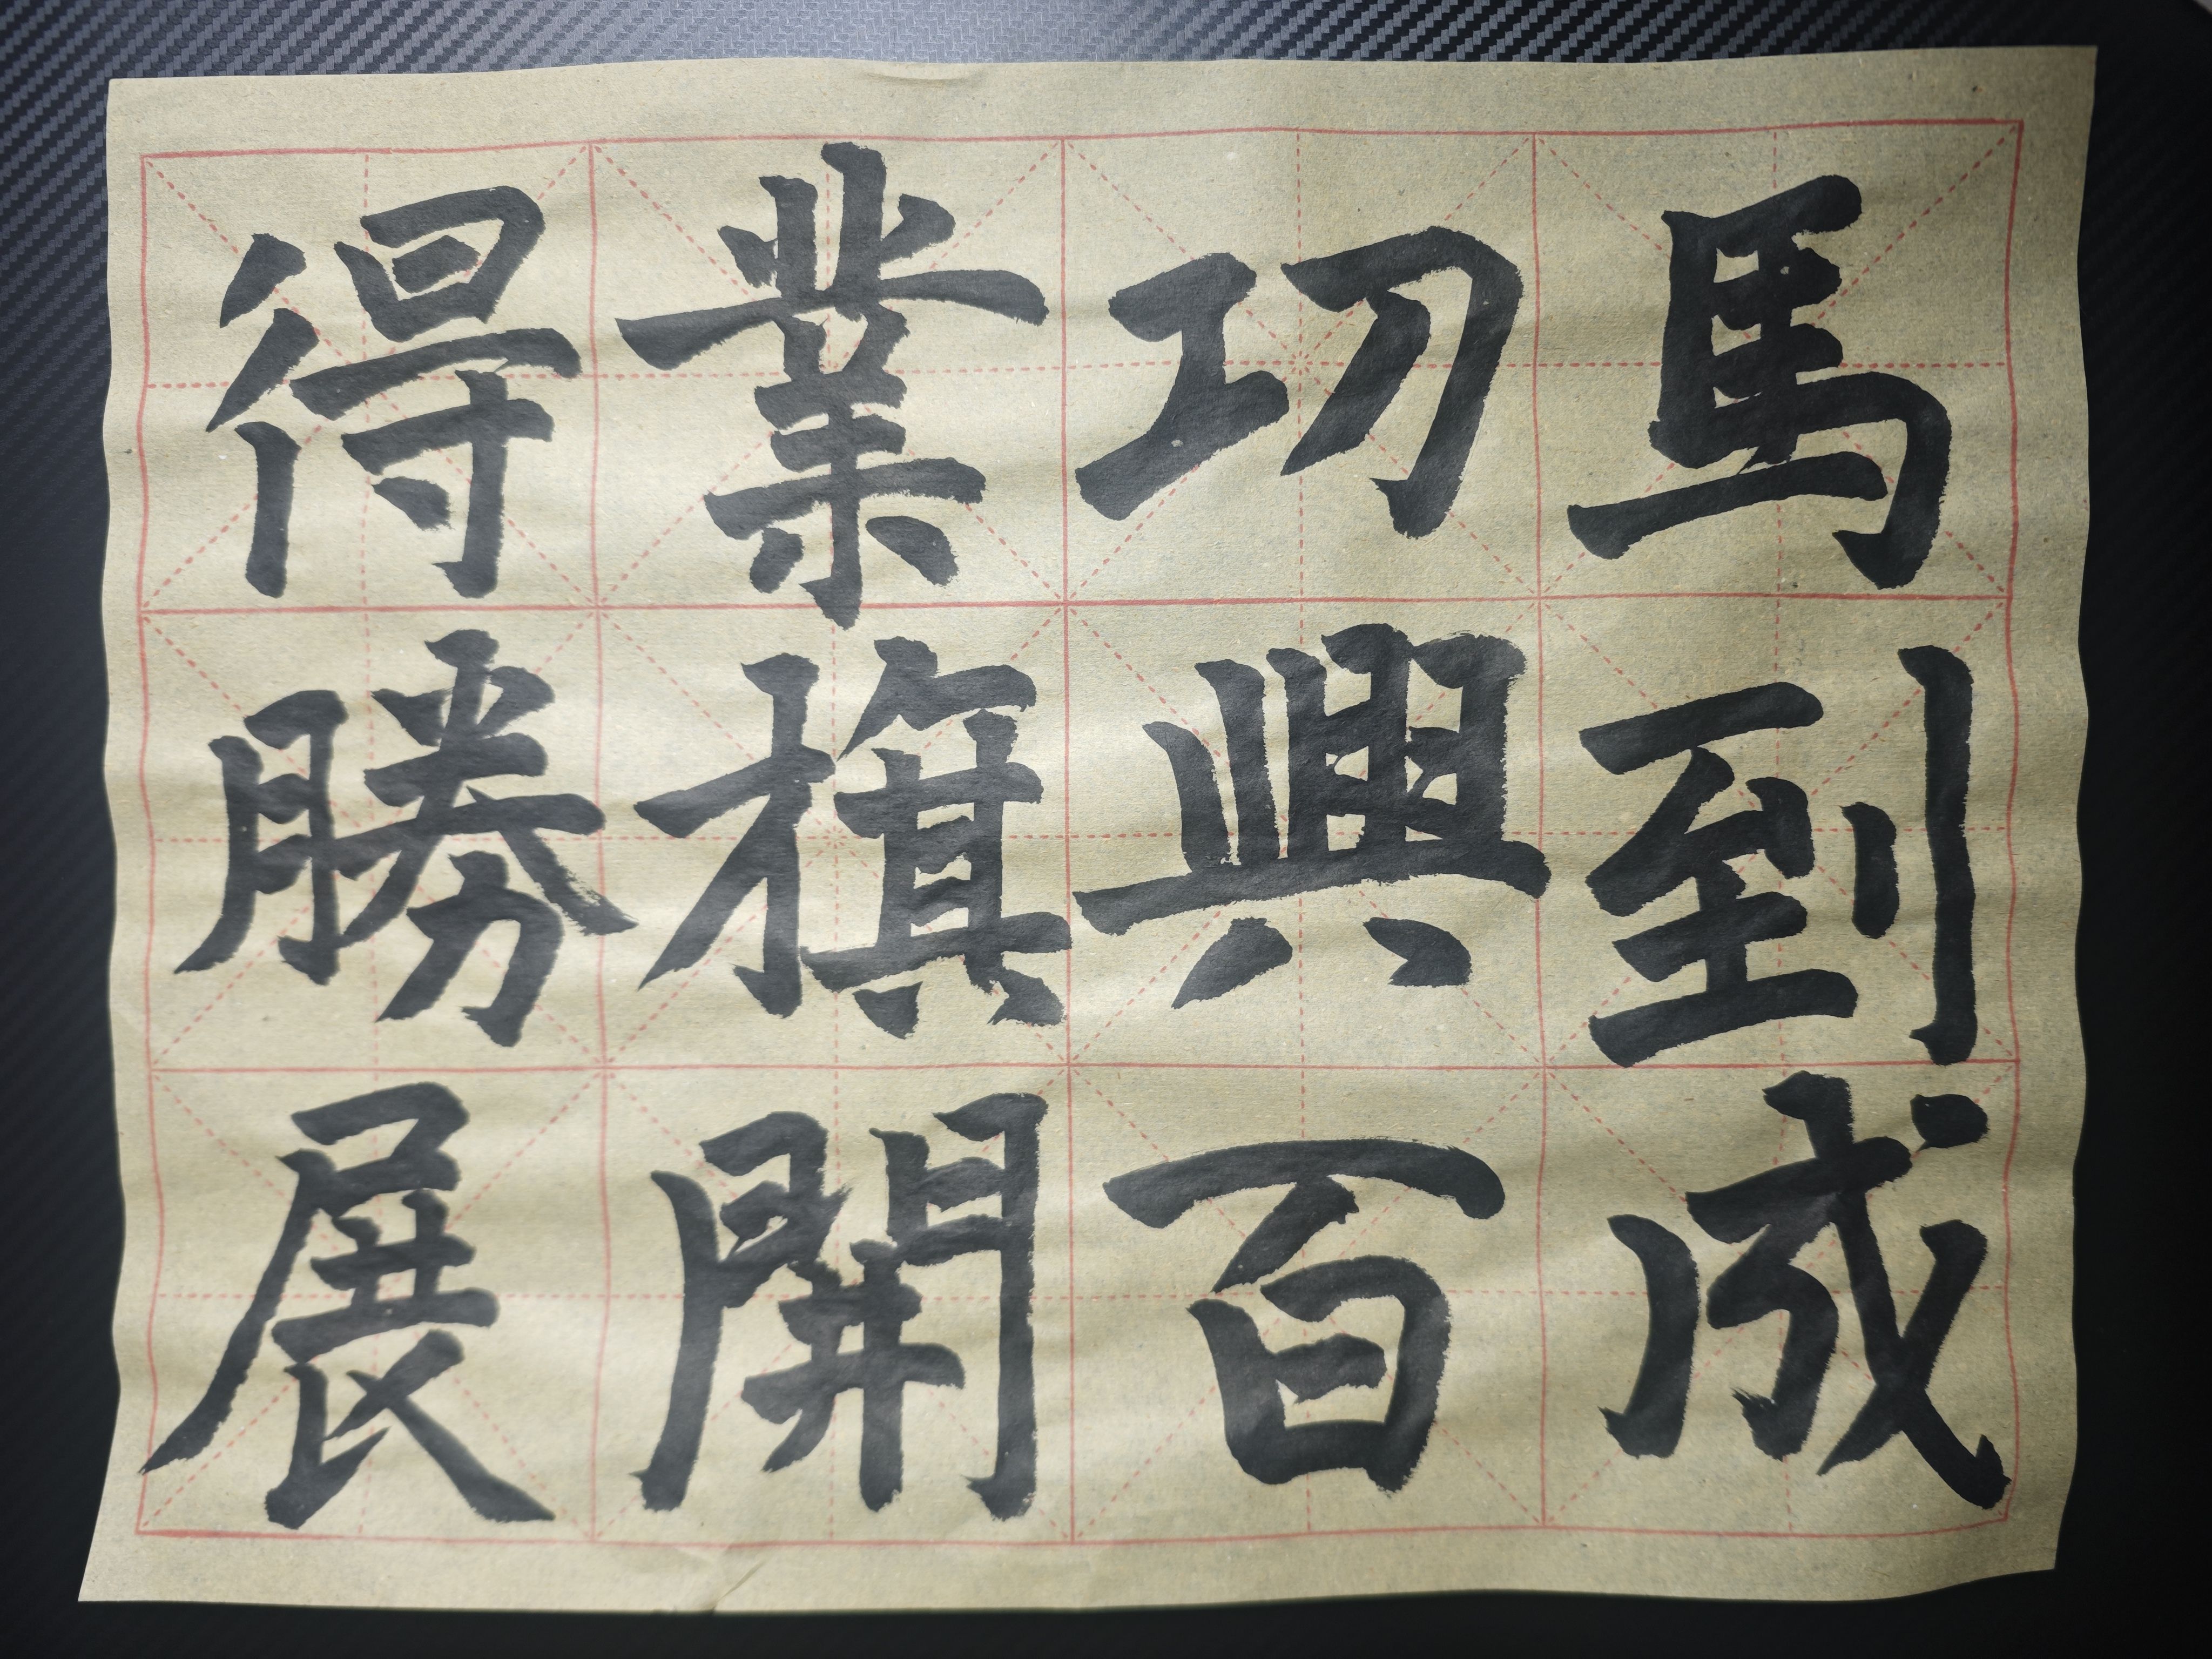 馬到成
功興百
業旗開
得勝展